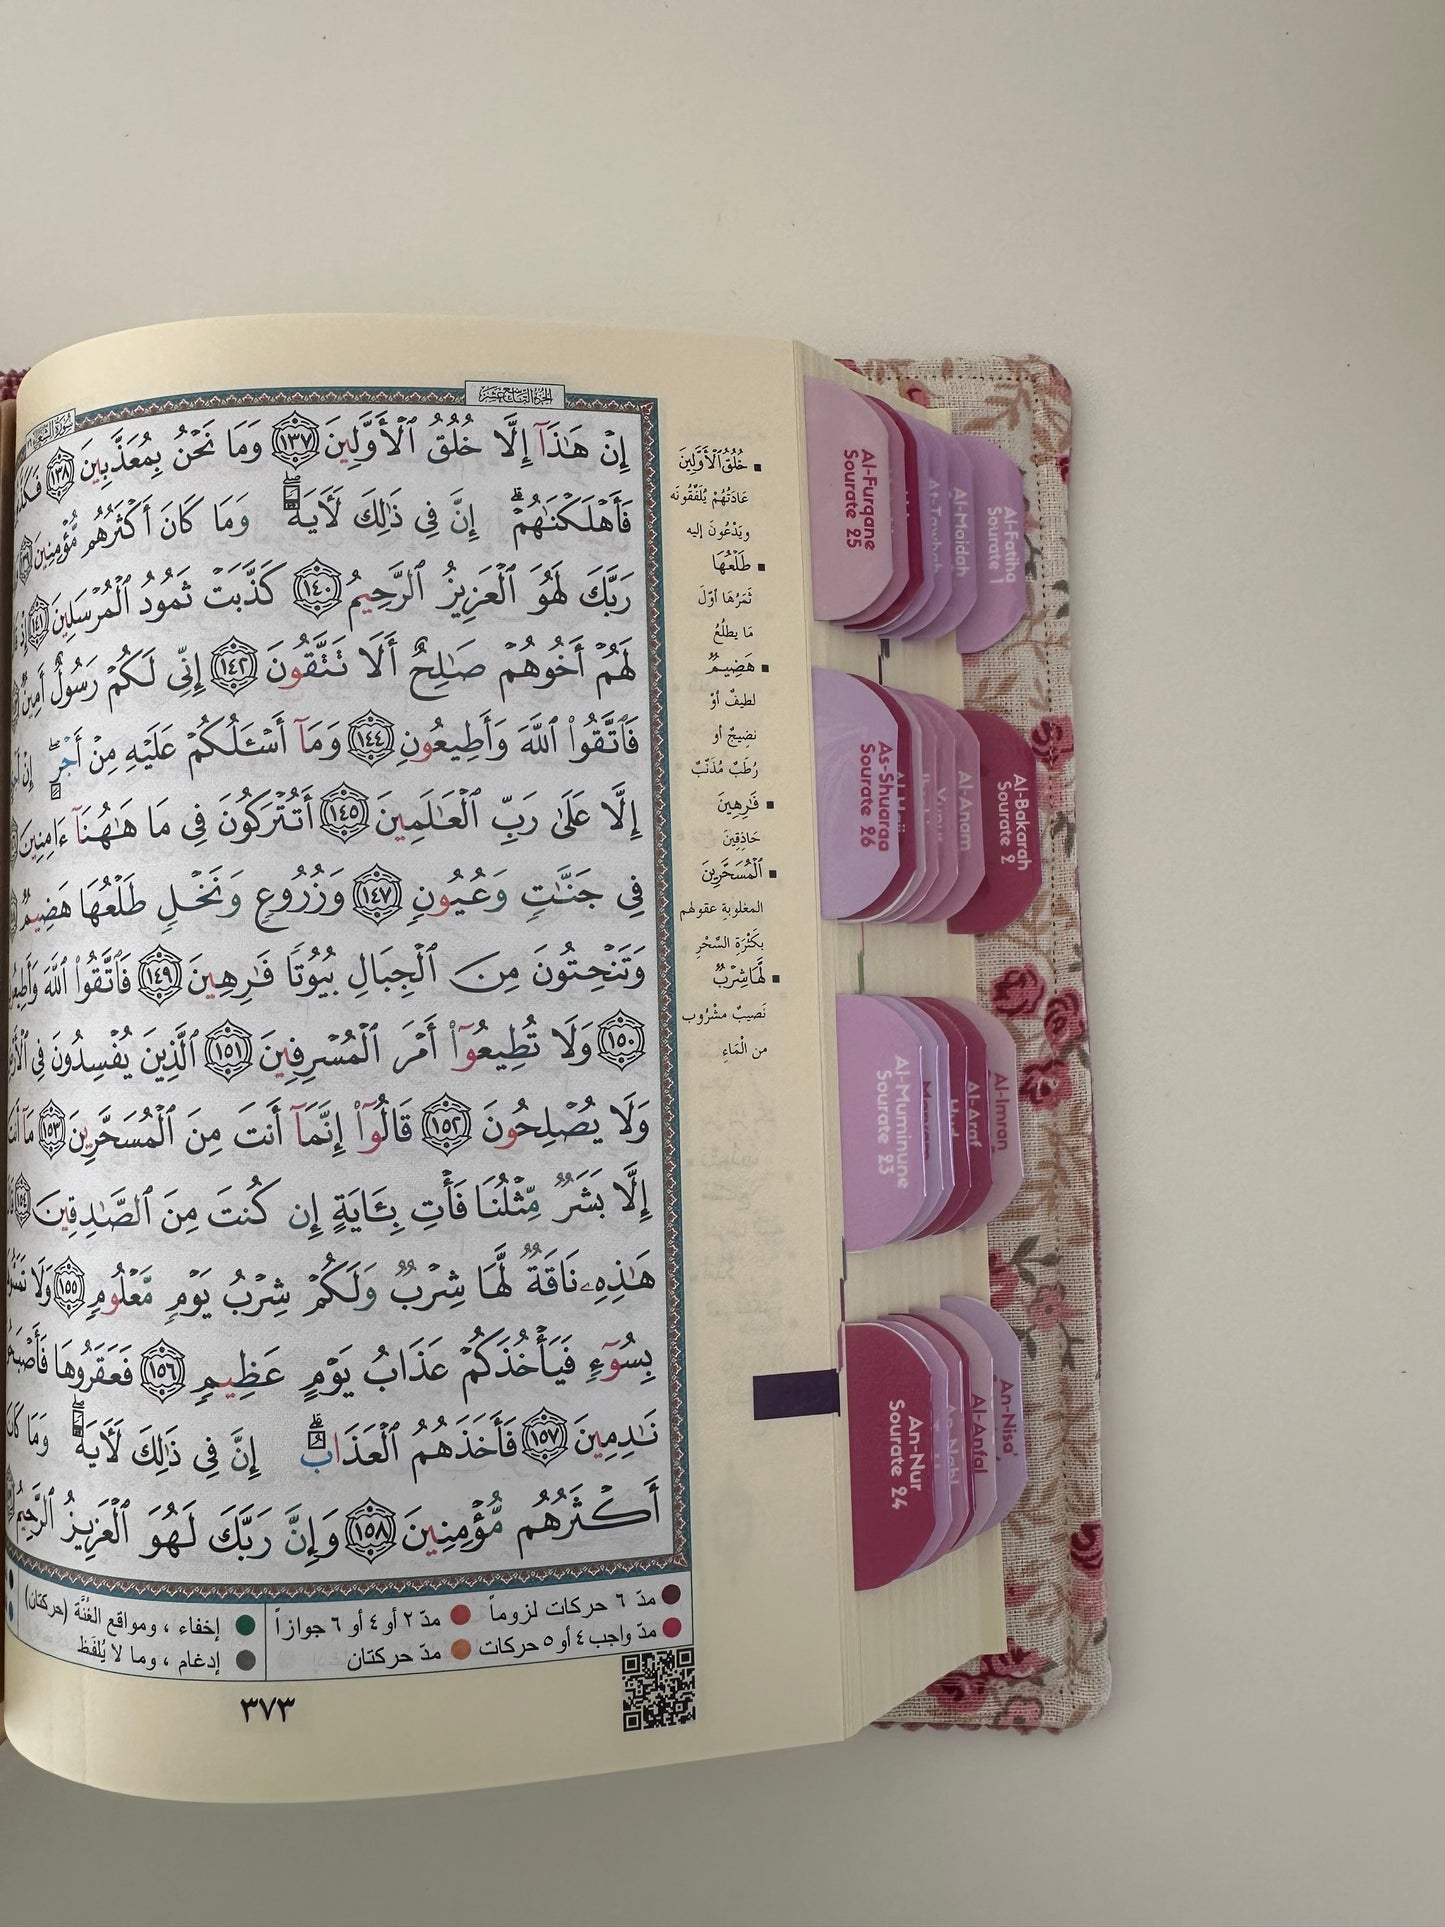 الجزء التاسع عشر
سورة الشعراء
إِنْ هَٰذَآ إِلَّا خُلُقُ ٱلْأَوَّلِينَ ١٣٧ وَمَا نَحْنُ بِمُعَذَّبِينَ ١٣٨
فَأَهْلَكْنَٰهُمْ ۗ إِنَّ فِى ذَٰلِكَ لَءَايَةً ۖ وَمَا كَانَ أَكْثَرُهُم مُّؤْمِنِينَ
رَبَّكَ لَهُوَ ٱلْعَزِيزُ ٱلرَّحِيمُ ١٤٠ كَذَّبَتْ ثَمُودُ ٱلْمُرْسَلِينَ ١٤١
لَهُمْ أَخُوهُمْ صَٰلِحٌ أَلَا تَتَّقُونَ ١٤٢ إِنِّى لَكُمْ رَسُولٌ أَمِينٌ
فَٱتَّقُوا۟ ٱللَّهَ وَأَطِيعُونِ ١٤٤ وَمَآ أَسْـَٔلُكُمْ عَلَيْهِ مِنْ أَجْرٍ ۖ إِنْ
إِلَّا عَلَىٰ رَبِّ ٱلْعَٰلَمِينَ ١٤٥ أَتُتْرَكُونَ فِى مَا هَٰهُنَآ ءَامِنِينَ
فِى جَنَّٰتٍ وَعُيُونٍ ١٤٧ وَزُرُوعٍ وَنَخْلٍ طَلْعُهَا هَضِيمٌ
وَتَنْحِتُونَ مِنَ ٱلْجِبَالِ بُيُوتًا فَٰرِهِينَ ١٤٩ فَٱتَّقُوا۟ ٱللَّهَ
١٥٠ وَلَا تُطِيعُوٓا۟ أَمْرَ ٱلْمُسْرِفِينَ ١٥١ ٱلَّذِينَ يُفْسِدُونَ فِى
وَلَا يُصْلِحُونَ ١٥٢ قَالُوٓا۟ إِنَّمَآ أَنتَ مِنَ ٱلْمُسَحَّرِينَ ١٥٣ مَآ
إِلَّا بَشَرٌ مِّثْلُنَا فَأْتِ بِـَٔايَةٍ إِن كُنتَ مِنَ ٱلصَّٰدِقِينَ ١٥٤
هَٰذِهِۦ نَاقَةٌ لَّهَا شِرْبٌ وَلَكُمْ شِرْبُ يَوْمٍ مَّعْلُومٍ ١٥٥ وَلَا
بِسُوٓءٍ فَيَأْخُذَكُمْ عَذَابُ يَوْمٍ عَظِيمٍ ١٥٦ فَعَقَرُوهَا
نَٰدِمِينَ ١٥٧ فَأَخَذَهُمُ ٱلْعَذَابُ ۗ إِنَّ فِى ذَٰلِكَ لَءَايَةً ۖ وَمَا كَانَ
أَكْثَرُهُم مُّؤْمِنِينَ ١٥٨ وَإِنَّ رَبَّكَ لَهُوَ ٱلْعَزِيزُ ٱلرَّحِيمُ
خُلُقُ ٱلْأَوَّلِينَ
عَادَتُهُمْ يُلَفِّقُونَه
ويَدْعُونَ إليه
طَلْعُهَا
ثَمَرُهَا أوّلَ
مَا يطلُعُ
هَضِيمٌ
لطيفٌ أوْ
نضِيجٌ أو
رُطَبٌ مُذَنّبٌ
فَٰرِهِينَ
حَاذِقِينَ
ٱلْمُسَحَّرِينَ
المغلوبةِ عقولهم
بكَثْرَةِ السِّحْرِ
لَّهَا شِرْبٌ
نَصِيبٌ مشْرُوب
من الْمَاءِ
مدّ ٦ حركات لزوماً
مدّ ٢ أو ٤ أو ٦ جوازاً
إخفاء ، ومواقع الغُنَّة (حركتان)
مدّ واجب ٤ أو ٥ حركات
مدّ حركتان
إدغام ، وما لا يُلفَظ
٣٧٣
Al-Furqane
Sourate 25
Al-Maidah
Al-Fatiha
Sourate 1
As-Shuaraa
Sourate 26
Al-Anam
Al-Bakarah
Sourate 2
Al-Muminune
Sourate 23
Maryam
Hud
Al-Araf
Al-Imran
An-Nur
Sourate 24
An-Nahl
Al-Anfal
An-Nisa'